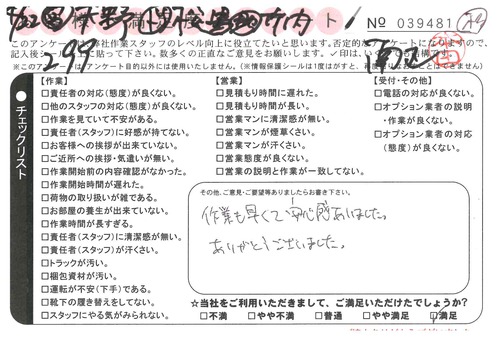 No 039481
このアンケートは弊社作業スタッフのレベル向上に役立てたいと思います。否定的なアンケートになりますので、
※このアンケートはアンケート目的以外には使用されません。(※情報保護シールは1度はがすと、再度貼りなおすことはできません)
チェックリスト
【作業】
□責任者の対応(態度)が良くない。
□他のスタッフの対応(態度)が良くない。
□作業を見ていて不安がある。
□責任者(スタッフ)に好感が持てない。
□お客様への挨拶が出来ていない。
□ご近所への挨拶・気遣いが無い。
□作業開始前の内容確認がなかった。
□作業開始時間が遅れた。
□荷物の取り扱いが雑である。
□お部屋の養生が出来ていない。
□作業時間が長すぎる。
□責任者(スタッフ)に清潔感が無い。
□責任者(スタッフ)が汗くさい。
□トラックが汚い。
□梱包資材が汚い。
□運転が不安(下手)である。
□靴下の履き替えをしてない。
□スタッフにやる気がみられない。
【営業】
□見積もり時間に遅れた。
□見積もり時間に長い。
□営業マンに清潔感が無い。
□営業マンが煙草くさい。
□営業マンが汗くさい。
□営業態度が良くない。
□営業の説明と作業が一致してない。
【受付・その他】
□電話の対応が良くない。
□オプション業者の説明
・作業が良くない。
□オプション業者の対応
(態度)が良くない。
その他、ご意見・ご要望等ありましたらお書き下さい。
作業も早くて安心感ありました。
ありがとうございました。
☆当社をご利用いただきまして、ご満足いただけたでしょうか?
□不満 □やや不満 □普通 □やや満足 □満足